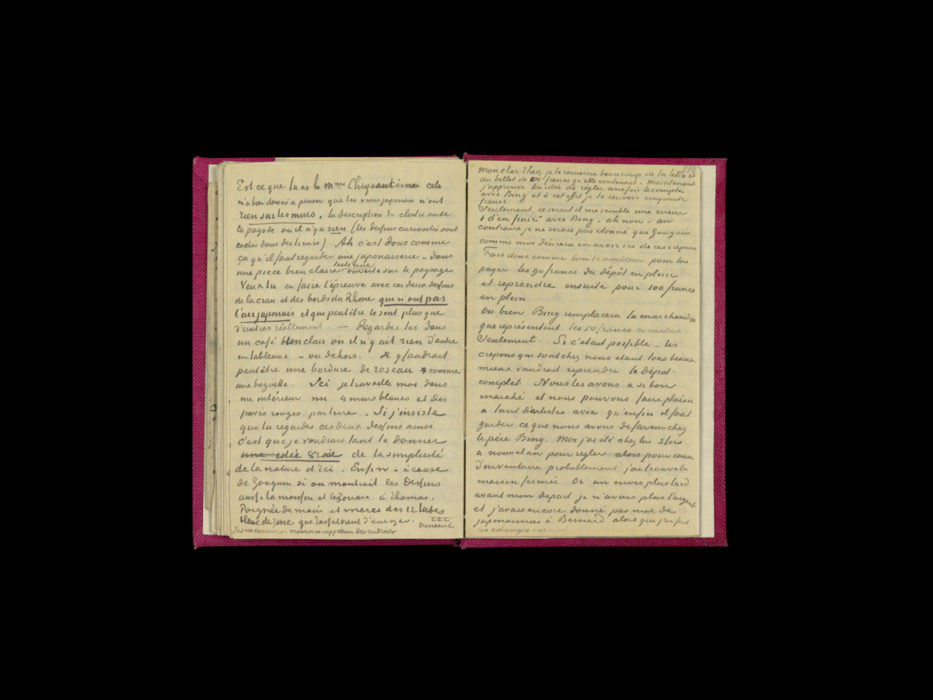 Est ce que tu as lu mme Chrysantème cela
m'a bien donné a penser que les vrais japonais n'ont
rien sur les murs. la description du cloitre ou de
la pagode ou il n'y a rien (les dessins curiosités sont
cachés dans des tiroirs) Ah c'est donc comme
ça qu'il faut regarder une japonaiserie – dans
une pièce bien claire toute nue ouverte sur le paysage
Veux tu en faire l'épreuve avec ces deux dessins
de la crau et des bords du Rhone qui n'ont pas
l'air japonais et qui peutêtre le sont plus que
d'autres réellement. — Regardes les dans
un café bien clair où il n'y ait rien d'autre
en tableaux – ou dehors. Il y faudrait
peutêtre une bordure de roseau comme
une baguette. Ici je travaille moi dans
un intérieur nu 4 murs blancs et des
pavés rouges par terre. Si j'insiste
que tu regardes ces deux dessins ainsi
c'est que je voudrais tant te donner
une idée vraie de la simplicité
de la nature d'ici. Enfin – à cause
de Gauguin si on montrait les dessins
aussi la moisson et le zouave à Thomas.
Poignée de main et merci des 12 tubes
blanc de zinc que
t. à t.
Vincent
mon cher theo, je te remercie beaucoup de ta lettre et
du billet de francs qu'elle contenait. Maintenant
j'approuve ton idée de régler une fois le compte
avec Bing et à cet effet je te renvoie cinquante
francs
Seulement ce serait il me semble une erreur
d'en finir avec Bing – ah non – au
contraire je ne serais pas étonné que Gauguin
comme moi désirera en avoir ici de ces crepons
Fais donc comme bon te semblera pour lui
payer les 90 francs du dépôt en plein
et reprendre ensuite pour 100 francs
en plein
Ou bien Bing remplacera la marchandise
que représentent les 50 francs
Seulement. Si c'était possible – les
crepons qui sont chez nous étant tous beaux
mieux vaudrait reprendre le dépôt
complet. Nous les avons à si bon
marché et nous pouvons faire plaisir
a tant d'artistes avec qu'enfin il faut
garder ce que nous avons de faveur chez
le père Bing. Moi j'ai été chez lui 3 fois
a nouvel an pour régler alors pour cause
d'inventaire probablement j'ai trouvé la
maison fermée. Or un mois plus tard
avant mon départ je n'avais plus l'argent
et j'avais encore donné pas mal de
japonaiseries à Bernard alors que j'ai fait